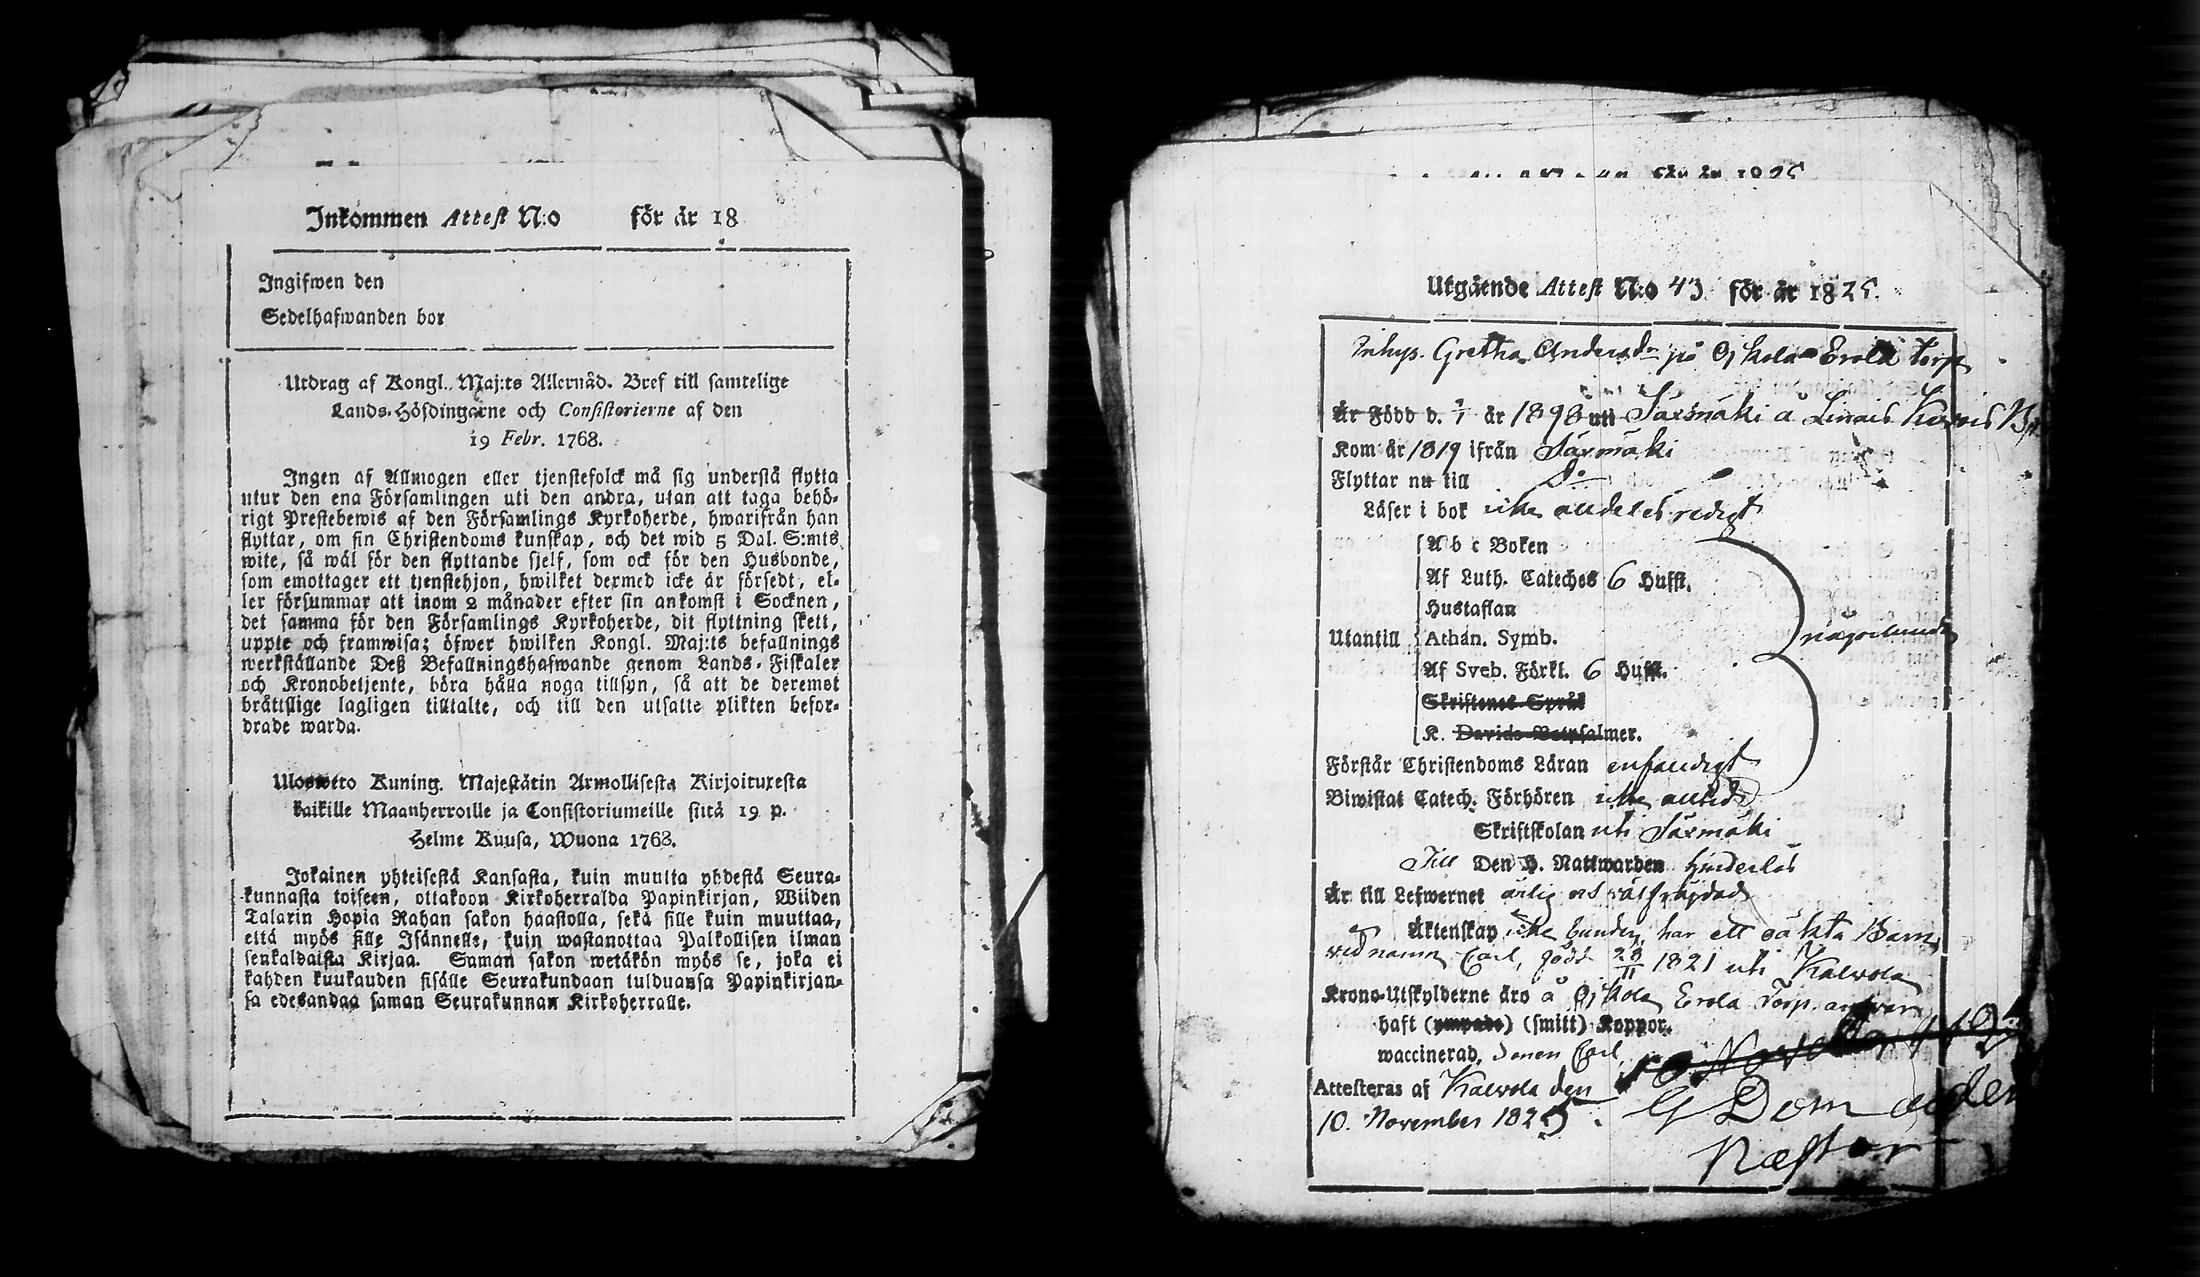 Inkommen Attest N:o för år 18
Ingifwen den
Sedelhafwanden bor
Utdrag af Kongl. Maj:ts Allernåd. Bref till samtelige
Lands-Höfdingarne och Consistorierne af den
19 Febr. 1768.
Ingen af Allmogen eller tjenstefolck må sig understå flytta
utur den ena Församlingen uti den andra, utan att taga behö-
rigt Prestebewis af den Församlings Kyrkoherde, hwarifrån han
flyttar, om sin Christendoms kunskap, och det wid 5 Dal. S:mts
wite, så wäl för den flyttande sjelf, som ock för den Husbonde,
som emottager ett tjenstehjon, hwilket dermed icke är försedt, el-
ler försummar att inom 2 månader efter sin ankomst i Socknen,
det samma för den Församlings Kyrkoherde, dit flyttning skett,
uppte och framwisa; öfwer hwilken Kongl. Maj:ts befallnings
werkställande Deß Befallningshafwande genom Lands-Fiskaler
och Kronobetjente, böra hålla noga tillsyn, så att de deremot
bråttslige lagligen tilltalte, och till den utsatte plikten befor-
drade warda.
Uloswето Kuning. Majestätin Armollisesta Kirjoituxesta
kaikille Maanherroille ja Consistoriumeille siitä 19 p.
Helme Kuusa, Wuona 1768.
Jokainen yhteisestä Kansasta, kuin muulta yhdestä Seura-
kunnasta toiseen, ottakoon Kirkoherralda Papinkirjan, Wiiden
Talarin Hopia Rahan sakon haastolla, sekä sille kuin muuttaa,
että myös sille Isännelle, kuin wastanottaa Palkollisen ilman
senkaldaista Kirjaa. Saman sakon wetäkön myös se, joka ei
kahden kuukauden sisälle Seurakundaan tulduansa Papinkirjan-
sa edesandaa saman Seurakunnan Kirkoherralle.
Utgående Attest N:o 43 för år 1825.
Inhys. Gretha Andersdr på Ojkola Erola torp
Är Född d. 7/1 år 1898 uti Säxmäki å Linais By
Kom år 1819 ifrån Säxmäki
Flyttar nu till Do
Läser i bok icke alldeles redigt
A b c Boken
Af Luth. Cateches 6 Hufst.
Hustaflan
Utantill Athan. Symb. någorlunda
Af Sveb. Förkl. 6 Hufst.
Skriftenes Språk
K. Davids Botpsalmer.
Förstår Christendoms Läran enfaldigt
Biwistat Catech. Förhören icke alltid
Skriftskolan uti Säxmäki
Till Den H. Nattwarden hinderlös
Är till Lefwernet ärlig och wälfrägdad
Äktenskap icke bunden, har ett oäkta Barn
wid namn Carl, född 28/11 1821 uti Kalvola
Krono-Utskylderne äro å Ojkola Erola Torp
haft (ympade) (smitt) Koppor.
waccinerad, Sonen Carl
Attesteras af Kalvola den
10. November 1825. G Domander
Pastor